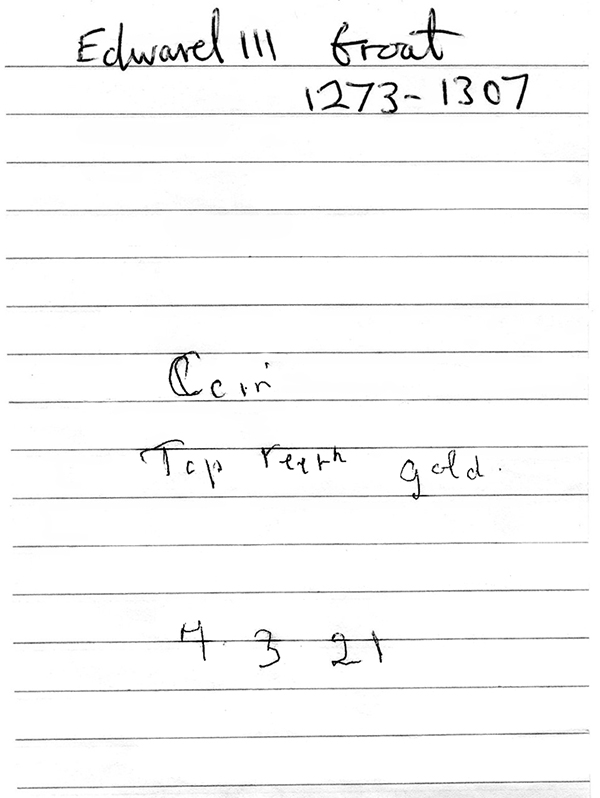 Edward III Groat
1273-1307
Coin
Top teeth gold.
4 3 21